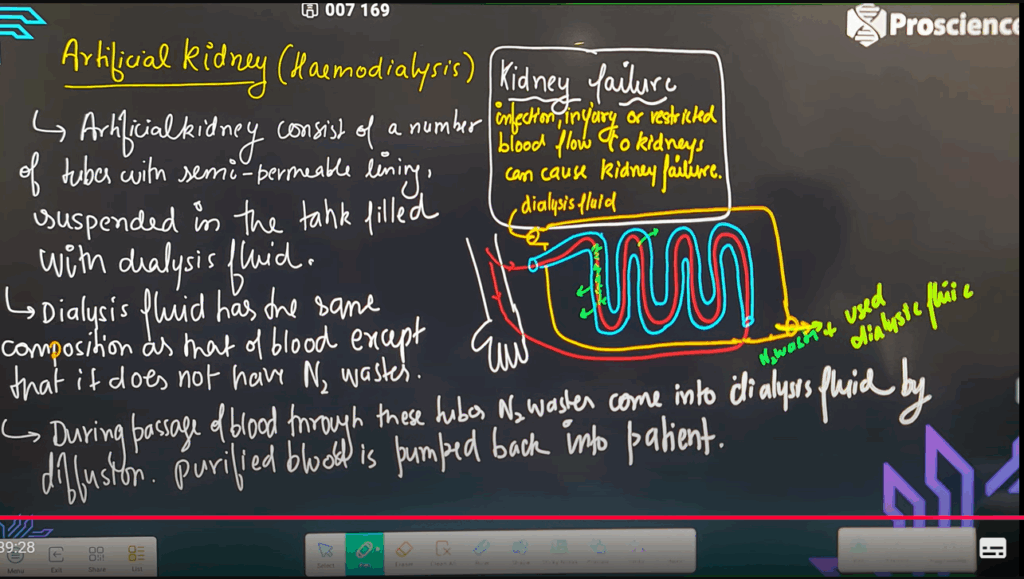 007 169
Proscience
Artificial kidney (Haemodialysis)
↳ Artificial kidney consist of a number
of tubes with semi-permeable lining,
suspended in the tank filled
with dialysis fluid.
↳ Dialysis fluid has the same
composition as that of blood except
that it does not have N₂ wastes.
↳ During passage of blood through these tubes N₂ wastes come into dialysis fluid by
diffusion. purified blood is pumped back into patient.
Kidney failure
infection, injury or restricted
blood flow to kidneys
can cause kidney failure.
dialysis fluid
N₂ waste + used
dialysis fluid
39:28
Menu
Exit
Share
List
Select
Eraser